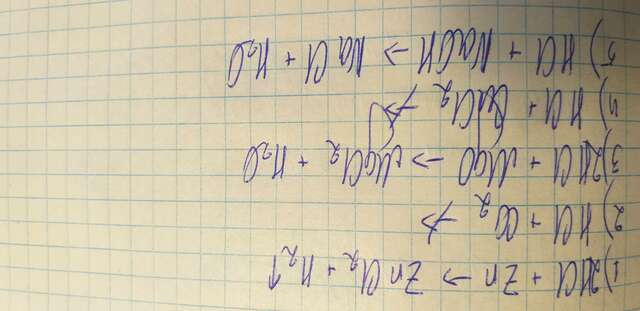 1) 2HCl + Zn → ZnCl₂ + H₂↑
2) HCl + CO₂ ↛
3) 2HCl + MgO → MgCl₂ + H₂O
4) HCl + CaCl₂ ↛
5) HCl + NaOH → NaCl + H₂O